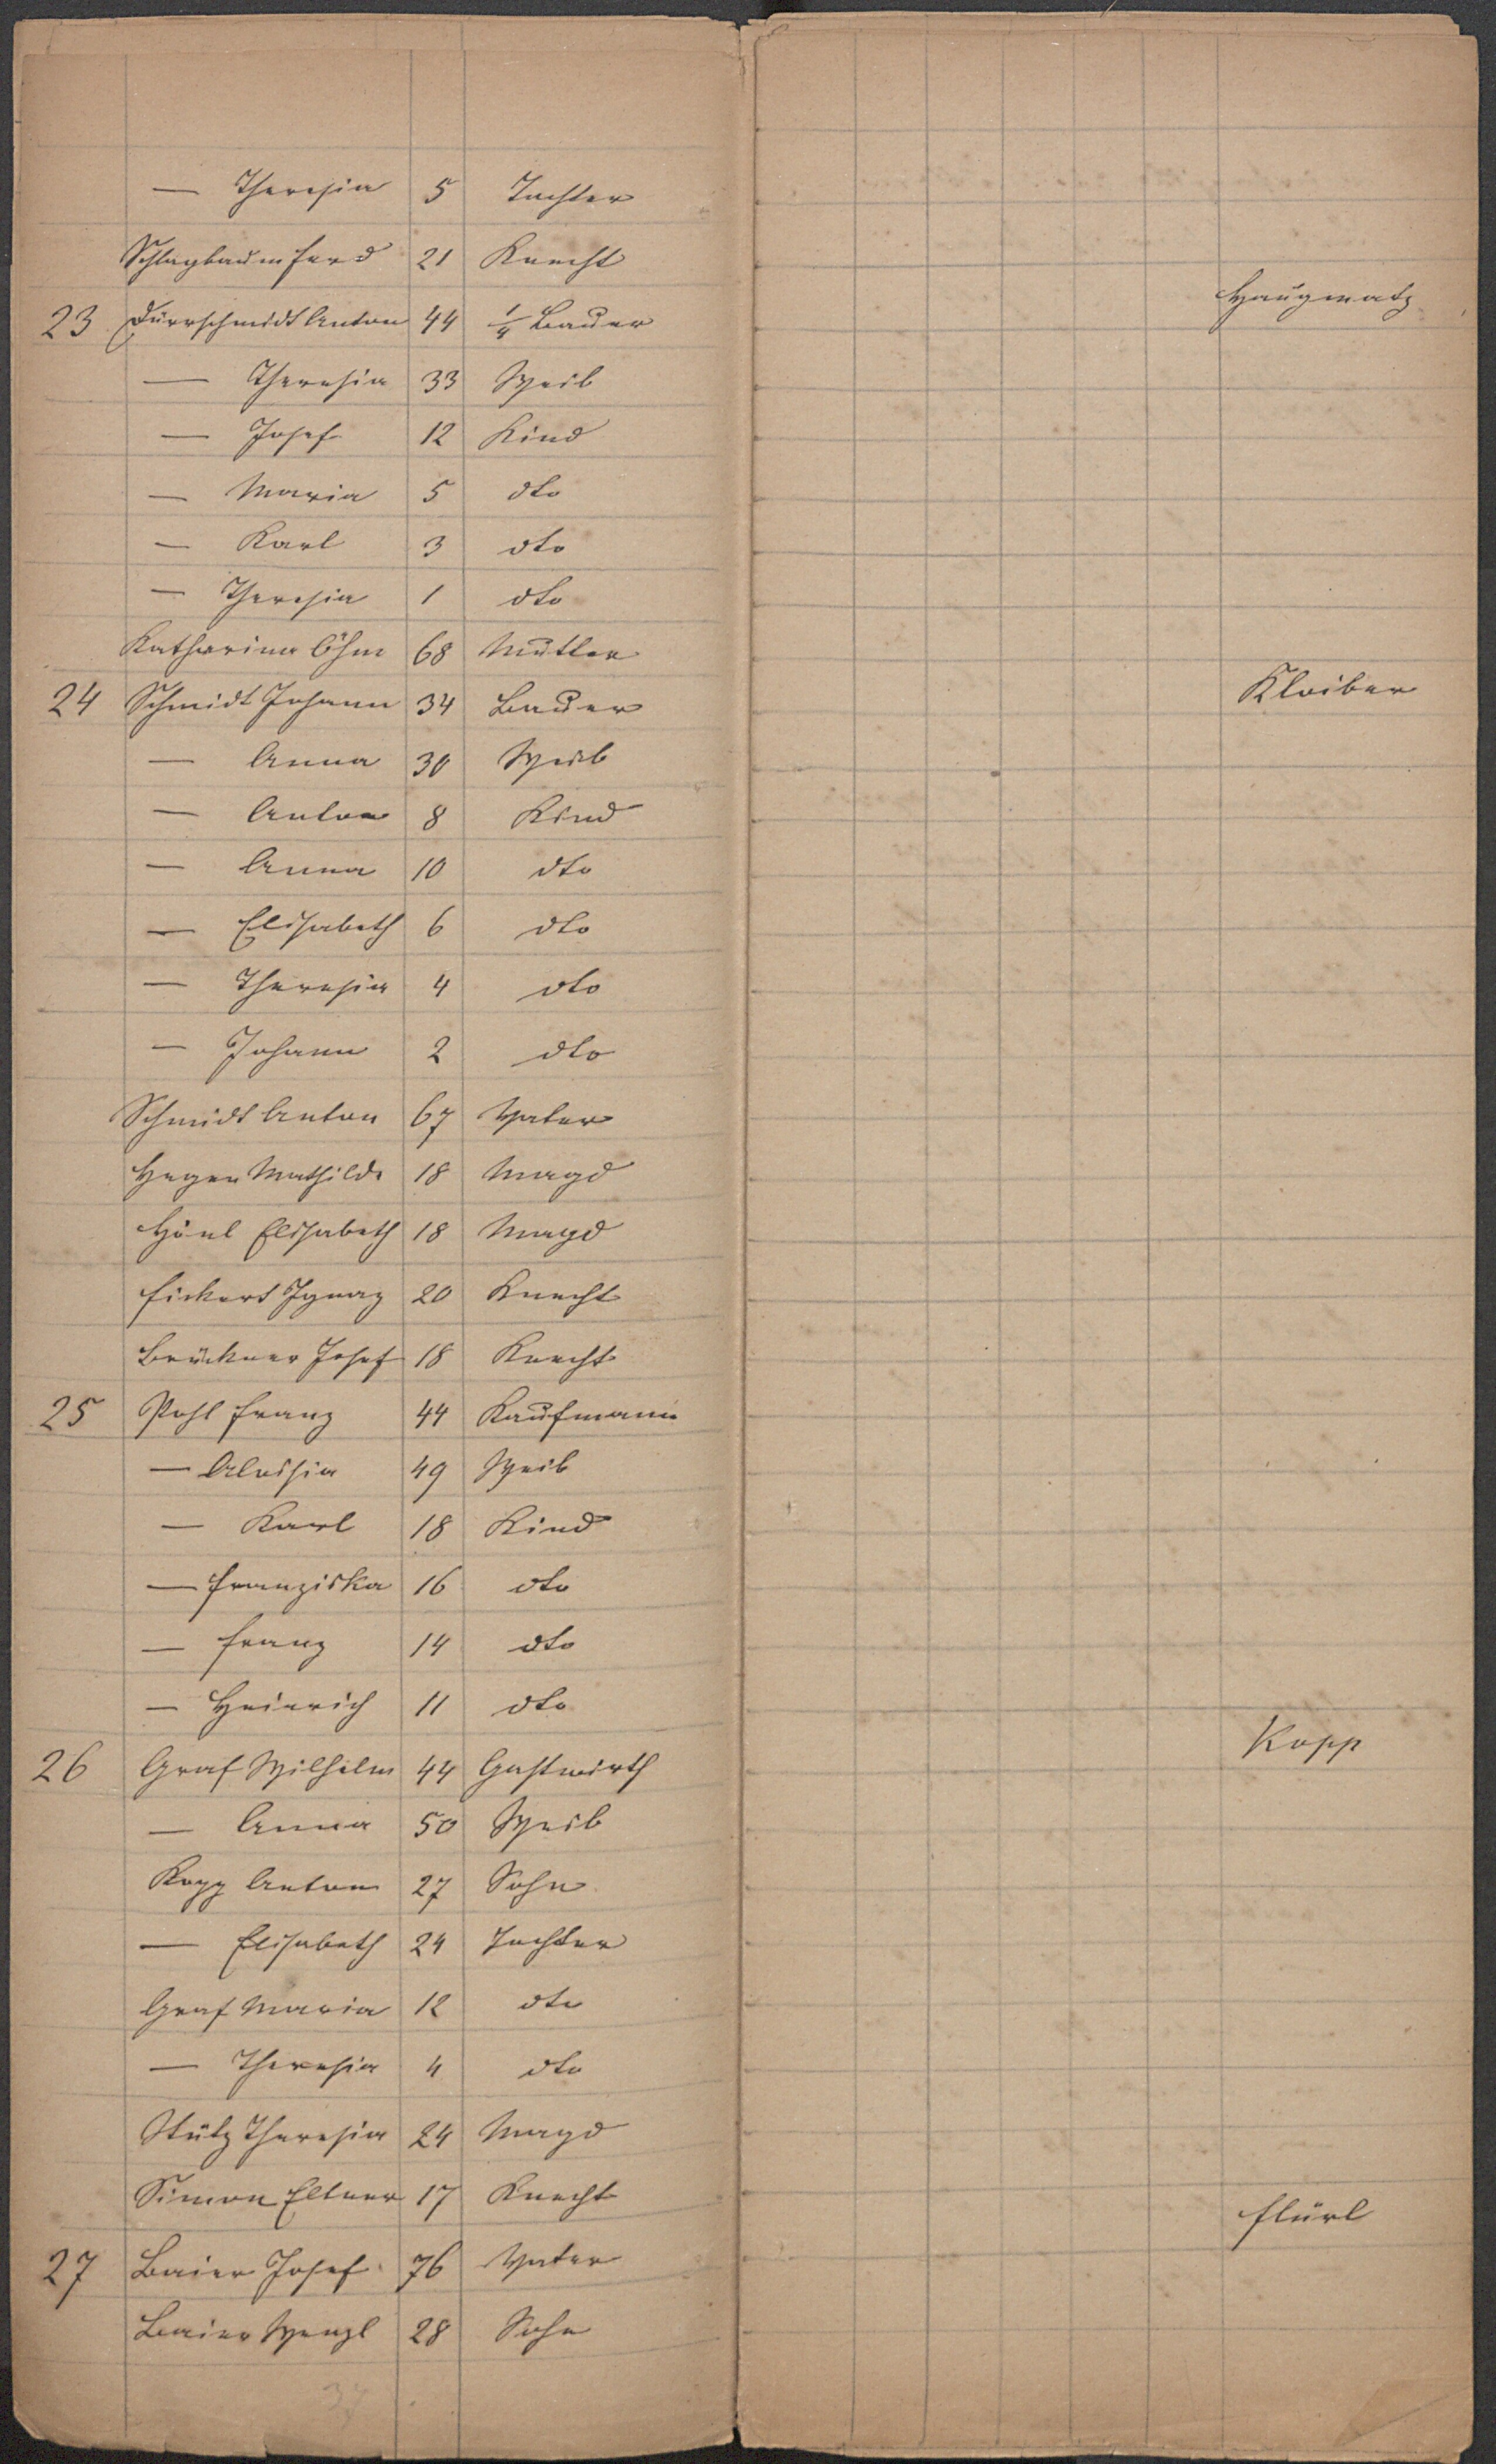 — Theresia 5 Tochter
Schlagbaum Ferd 21 Knecht
23 Dürrschmidt Anton 44 1/4 Bauer Haugmatz
— Theresia 33 Weib
— Josef 12 Kind
— Maria 5 dto
— Karl 3 dto
— Theresia 1 dto
Katharina Böhm 68 Mutter
24 Schmidt Johann 34 Bauer Kloiber
— Anna 30 Weib
— Anton 8 Kind
— Anna 10 dto
— Elisabeth 6 dto
— Theresia 4 dto
— Johann 2 dto
Schmidt Anton 67 Vater
Hager Mathilde 18 Magd
Hönl Elisabeth 18 Magd
Fickert Ignaz 20 Knecht
Brückner Josef 18 Knecht
25 Pohl Franz 44 Kaufmann
— Aloisia 49 Weib
— Karl 18 Kind
— Franziska 16 dto
— Franz 14 dto
— Heinrich 11 dto
26 Graf Wilhelm 44 Gastwirth Kopp
— Anna 50 Weib
Kopp Anton 27 Sohn
— Elisabeth 24 Tochter
Graf Maria 12 dto
— Theresia 4 dto
Stütz Theresia 24 Magd
Simon Ellner 17 Knecht
27 Baier Josef 76 Vater Flürl
Baier Wenzl 28 Sohn